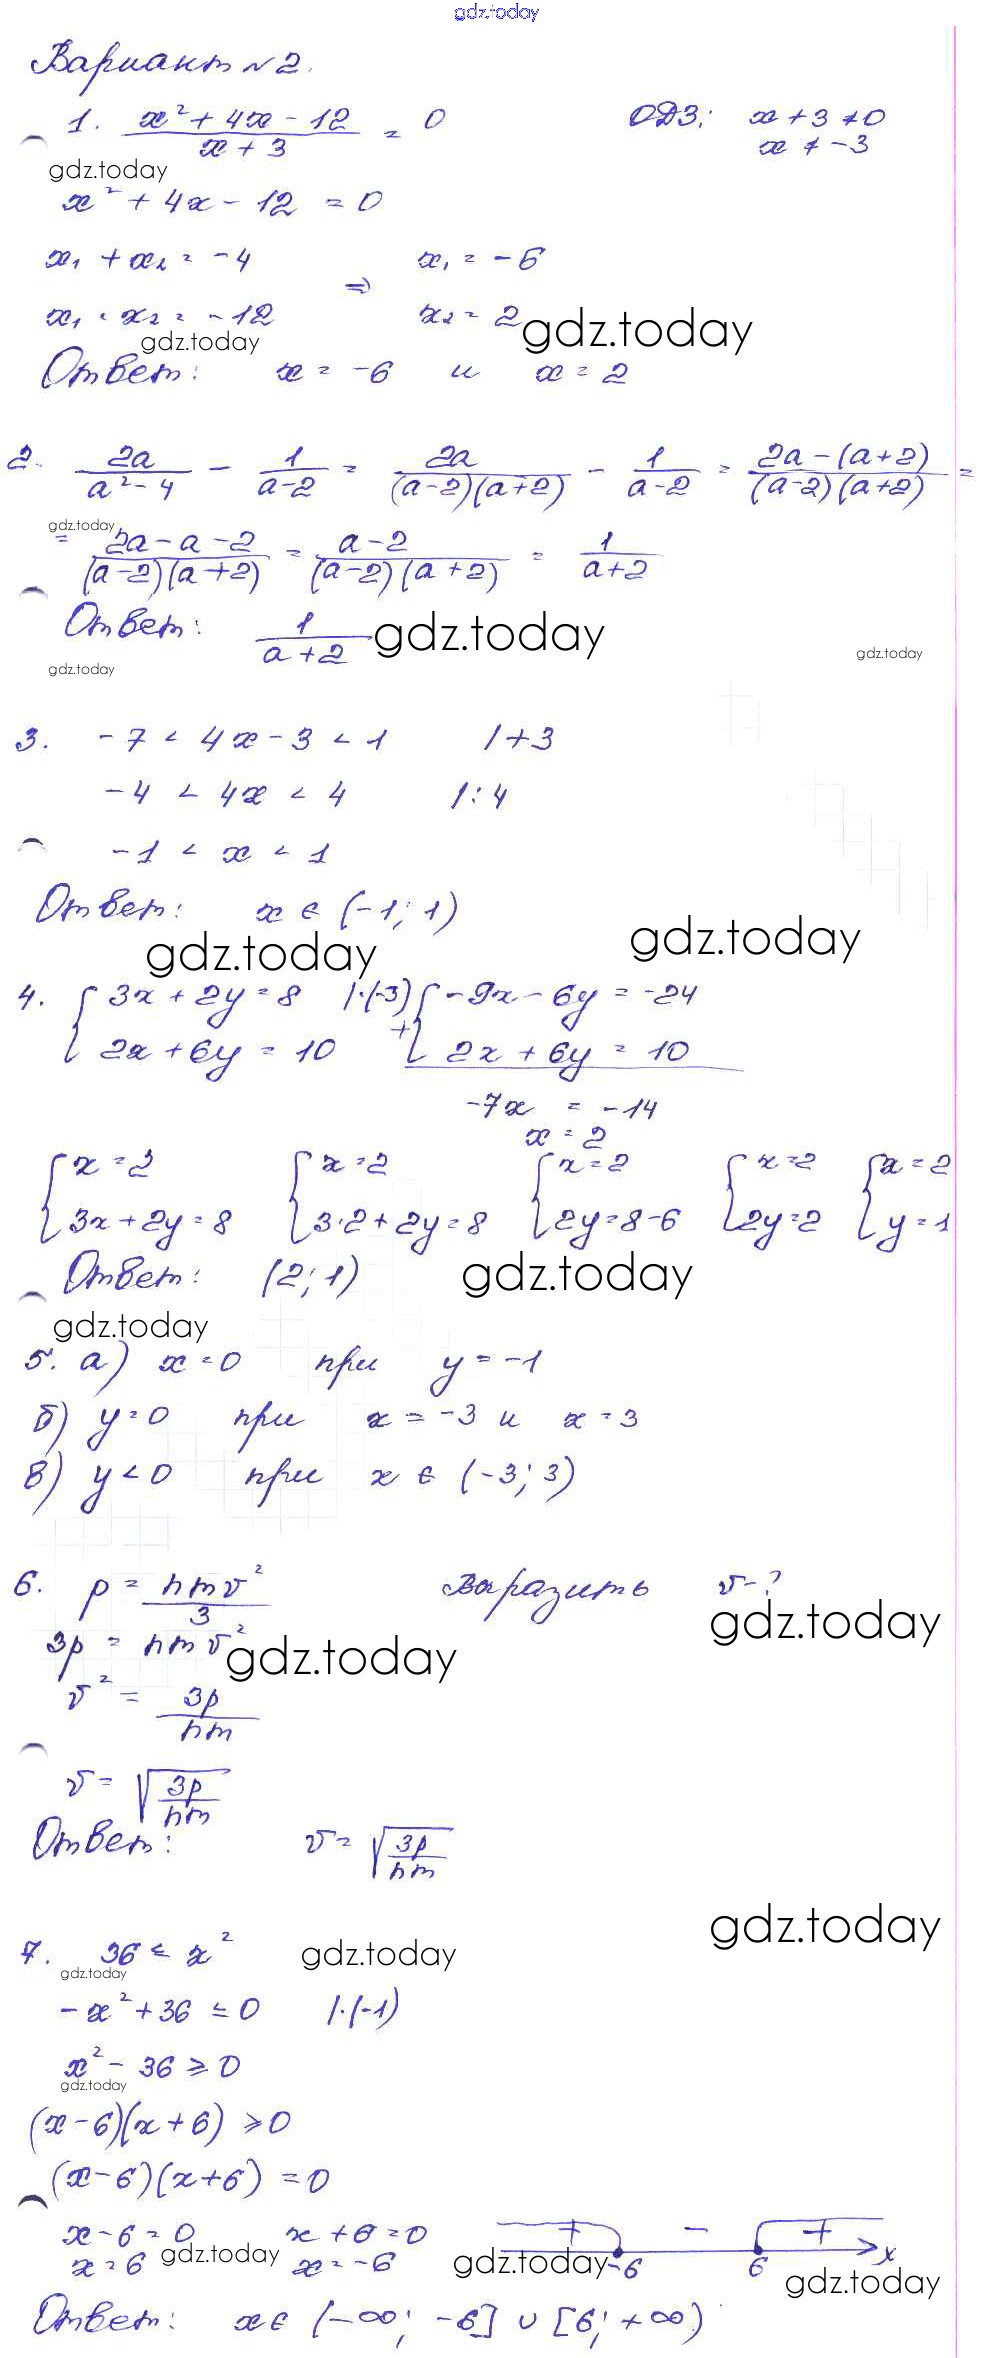 gdz.today
Вариант №2.
1. (x² + 4x - 12)/(x + 3) = 0 ОДЗ: x + 3 ≠ 0
x ≠ -3
gdz.today
x² + 4x - 12 = 0
x₁ + x₂ = -4 x₁ = -6
⇒
x₁ · x₂ = -12 x₂ = 2 gdz.today
gdz.today
Ответ: x = -6 и x = 2
2. 2a/(a² - 4) - 1/(a - 2) = 2a/((a-2)(a+2)) - 1/(a-2) = (2a - (a+2))/((a-2)(a+2)) =
gdz.today
= (2a - a - 2)/((a-2)(a+2)) = (a - 2)/((a-2)(a+2)) = 1/(a+2)
Ответ: 1/(a+2) gdz.today
gdz.today gdz.today
3. -7 < 4x - 3 < 1 /+3
-4 < 4x < 4 /:4
-1 < x < 1
Ответ: x ∈ (-1; 1)
gdz.today gdz.today
4. { 3x + 2y = 8 |·(-3) { -9x - 6y = -24
{ 2x + 6y = 10 + { 2x + 6y = 10
-7x = -14
x = 2
{ x = 2 { x = 2 { x = 2 { x = 2 { x = 2
{ 3x + 2y = 8 { 3·2 + 2y = 8 { 2y = 8-6 { 2y = 2 { y = 1
Ответ: (2; 1) gdz.today
gdz.today
5. а) x = 0 при y = -1
б) y = 0 при x = -3 и x = 3
в) y < 0 при x ∈ (-3; 3)
6. p = nmv²/3 Выразить v - ?
gdz.today
3p = nmv² gdz.today
v² = 3p/nm
v = √(3p/nm)
Ответ: v = √(3p/nm)
gdz.today
7. 36 ≤ x² gdz.today
gdz.today
-x² + 36 ≤ 0 /·(-1)
x² - 36 ≥ 0
gdz.today
(x-6)(x+6) ≥ 0
(x-6)(x+6) = 0
x - 6 = 0 x + 6 = 0 + - +
x = 6 gdz.today x = -6 gdz.today -6 6 x
gdz.today
Ответ: x ∈ (-∞; -6] ∪ [6; +∞)